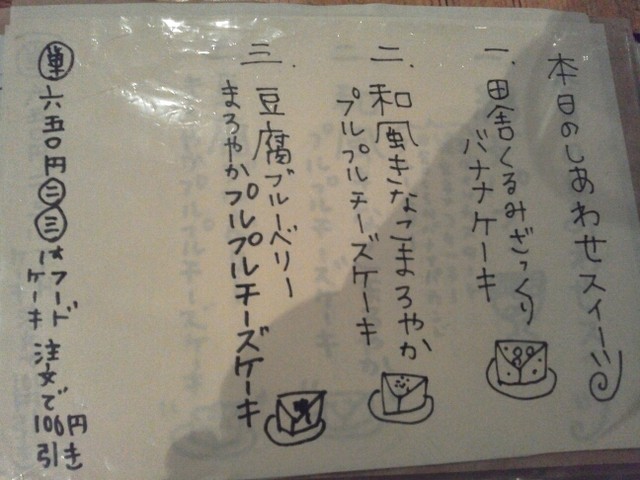 本日のしあわせスイーツ
一.田舎くるみざっくり
バナナケーキ
二.和風きなこまろやか
プルプルチーズケーキ
三.豆腐ブルーベリー
まろやかプルプルチーズケーキ
単六五〇円 二 三はフード注文で100円引き
ケーキ